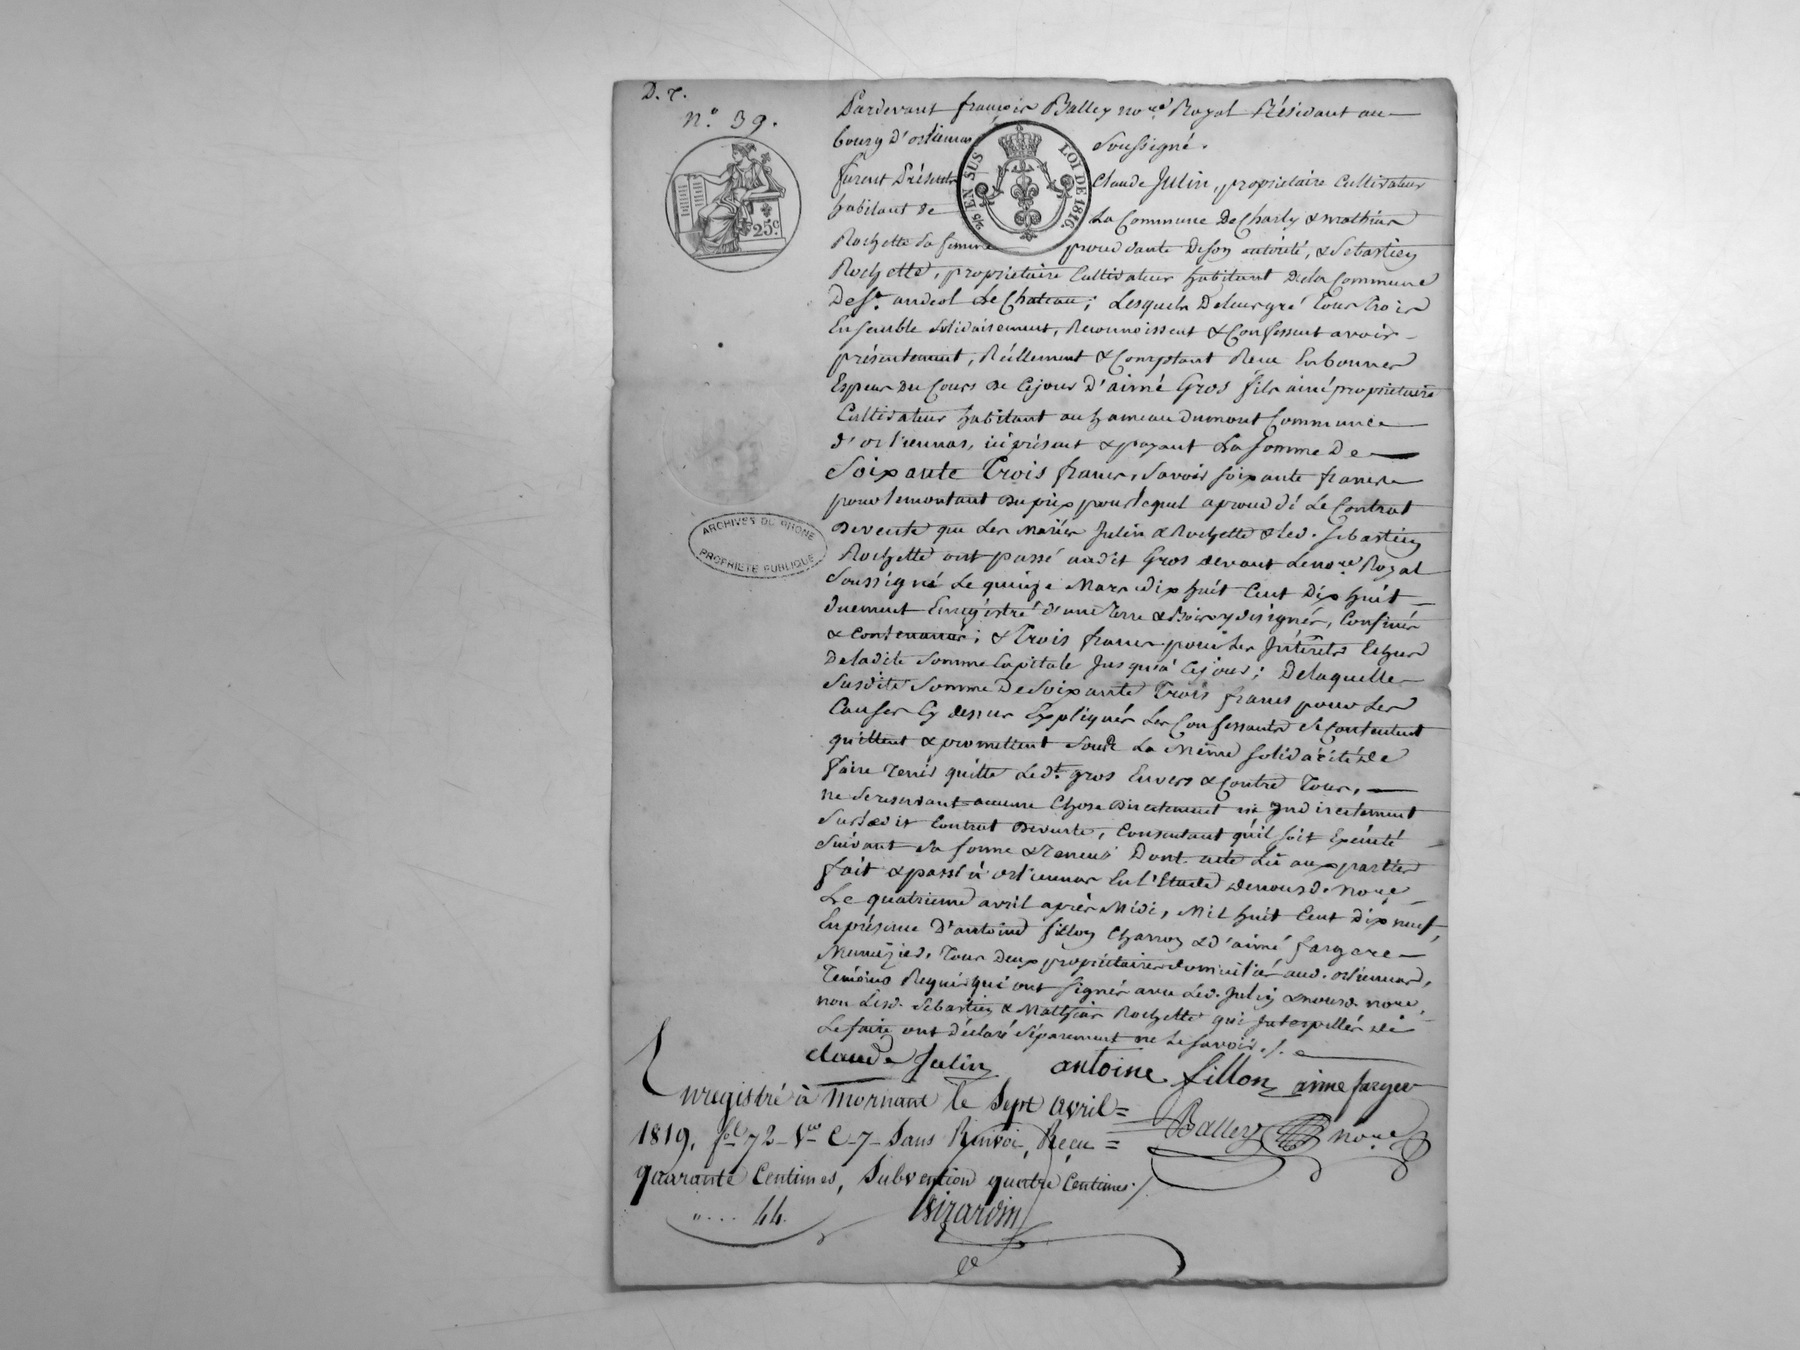 D. 7.
N.° 39.
25.c
¼ EN SUS LOI DE 1816.
ARCHIVES DU RHONE
PROPRIETE PUBLIQUE
Pardevant françois Balley no.re Royal Résidant au
bourg d'orlienas soussigné.
furent Présents Claude Julin, propriétaire Cultivateur
habitant de La Commune De Charly & mathias
Rochette sa femme procedante De son autorité, & Sebastien
Rochette, propriétaire Cultivateur habitant Dela Commune
De St. andeol Le Chateau; Lesquels De leur gré tous Trois
Ensemble solidairement, Reconnoissent & Confessent avoir
présentement, Réellement & Comptant Reçu En bonnes
Especes Du Cours De Cejour D'aimé Gros fils ainé propriétaire
Cultivateur habitant au hameau Dumont Commune
d'orlienas, ici présent & payant La somme De
Soixante Trois francs, savoir soixante francs
pour le montant Du prix pour lequel a procedé Le Contrat
De vente que Les Mariés Julin & Rochette & Led. Sebastien
Rochette ont passé audit Gros devant Le no.re Royal
Soussigné Le quinze Mars Dix huit Cent Dix huit
duement Enregistré d'une Terre & Bois y désignés, Confinés
& Contenancés; & Trois francs pour Les Intérêts Echus
De ladite somme Capitale jusqu'à Cejour; De laquelle
Susdite somme De soixante Trois francs pour Les
Causes Cy dessus Expliqués Les Confessants se Contentent
quittent & promettent sous La Même solidarité De
faire Tenir quitte Led.t gros Envers & Contre Tous,
ne se reservant aucune Chose Directement ni Indirectement
Surledit Contrat De vente, Consentant qu'il soit Exécuté
Suivant sa forme & Teneur Dont acte Lû aux parties
fait & passé à orlienas En l'Etude de nousd. no.re
Le quatrieme avril après Midi, Mil huit Cent Dix neuf,
En présence D'antoine fillon Charron & d'aimé fargere
Menuizier, Tous Deux propriétaires domiciliés aud. orlienas,
Témoins Requis qui ont signés avec Led. Julin & nousd. no.re
non Lesd. Sebastien & Mathias Rochette qui Interpellés De
Le faire ont Déclaré séparement ne Le savoir./.
claude Julin antoine fillon aimé farger
Balley no.re
Enregistré à Mornant le Sept Avril
1819. f.° 72 V.o C. 7 Sans Renvoi, Reçu
quarante Centimes, Subvention quatre Centimes./.
"... 44.